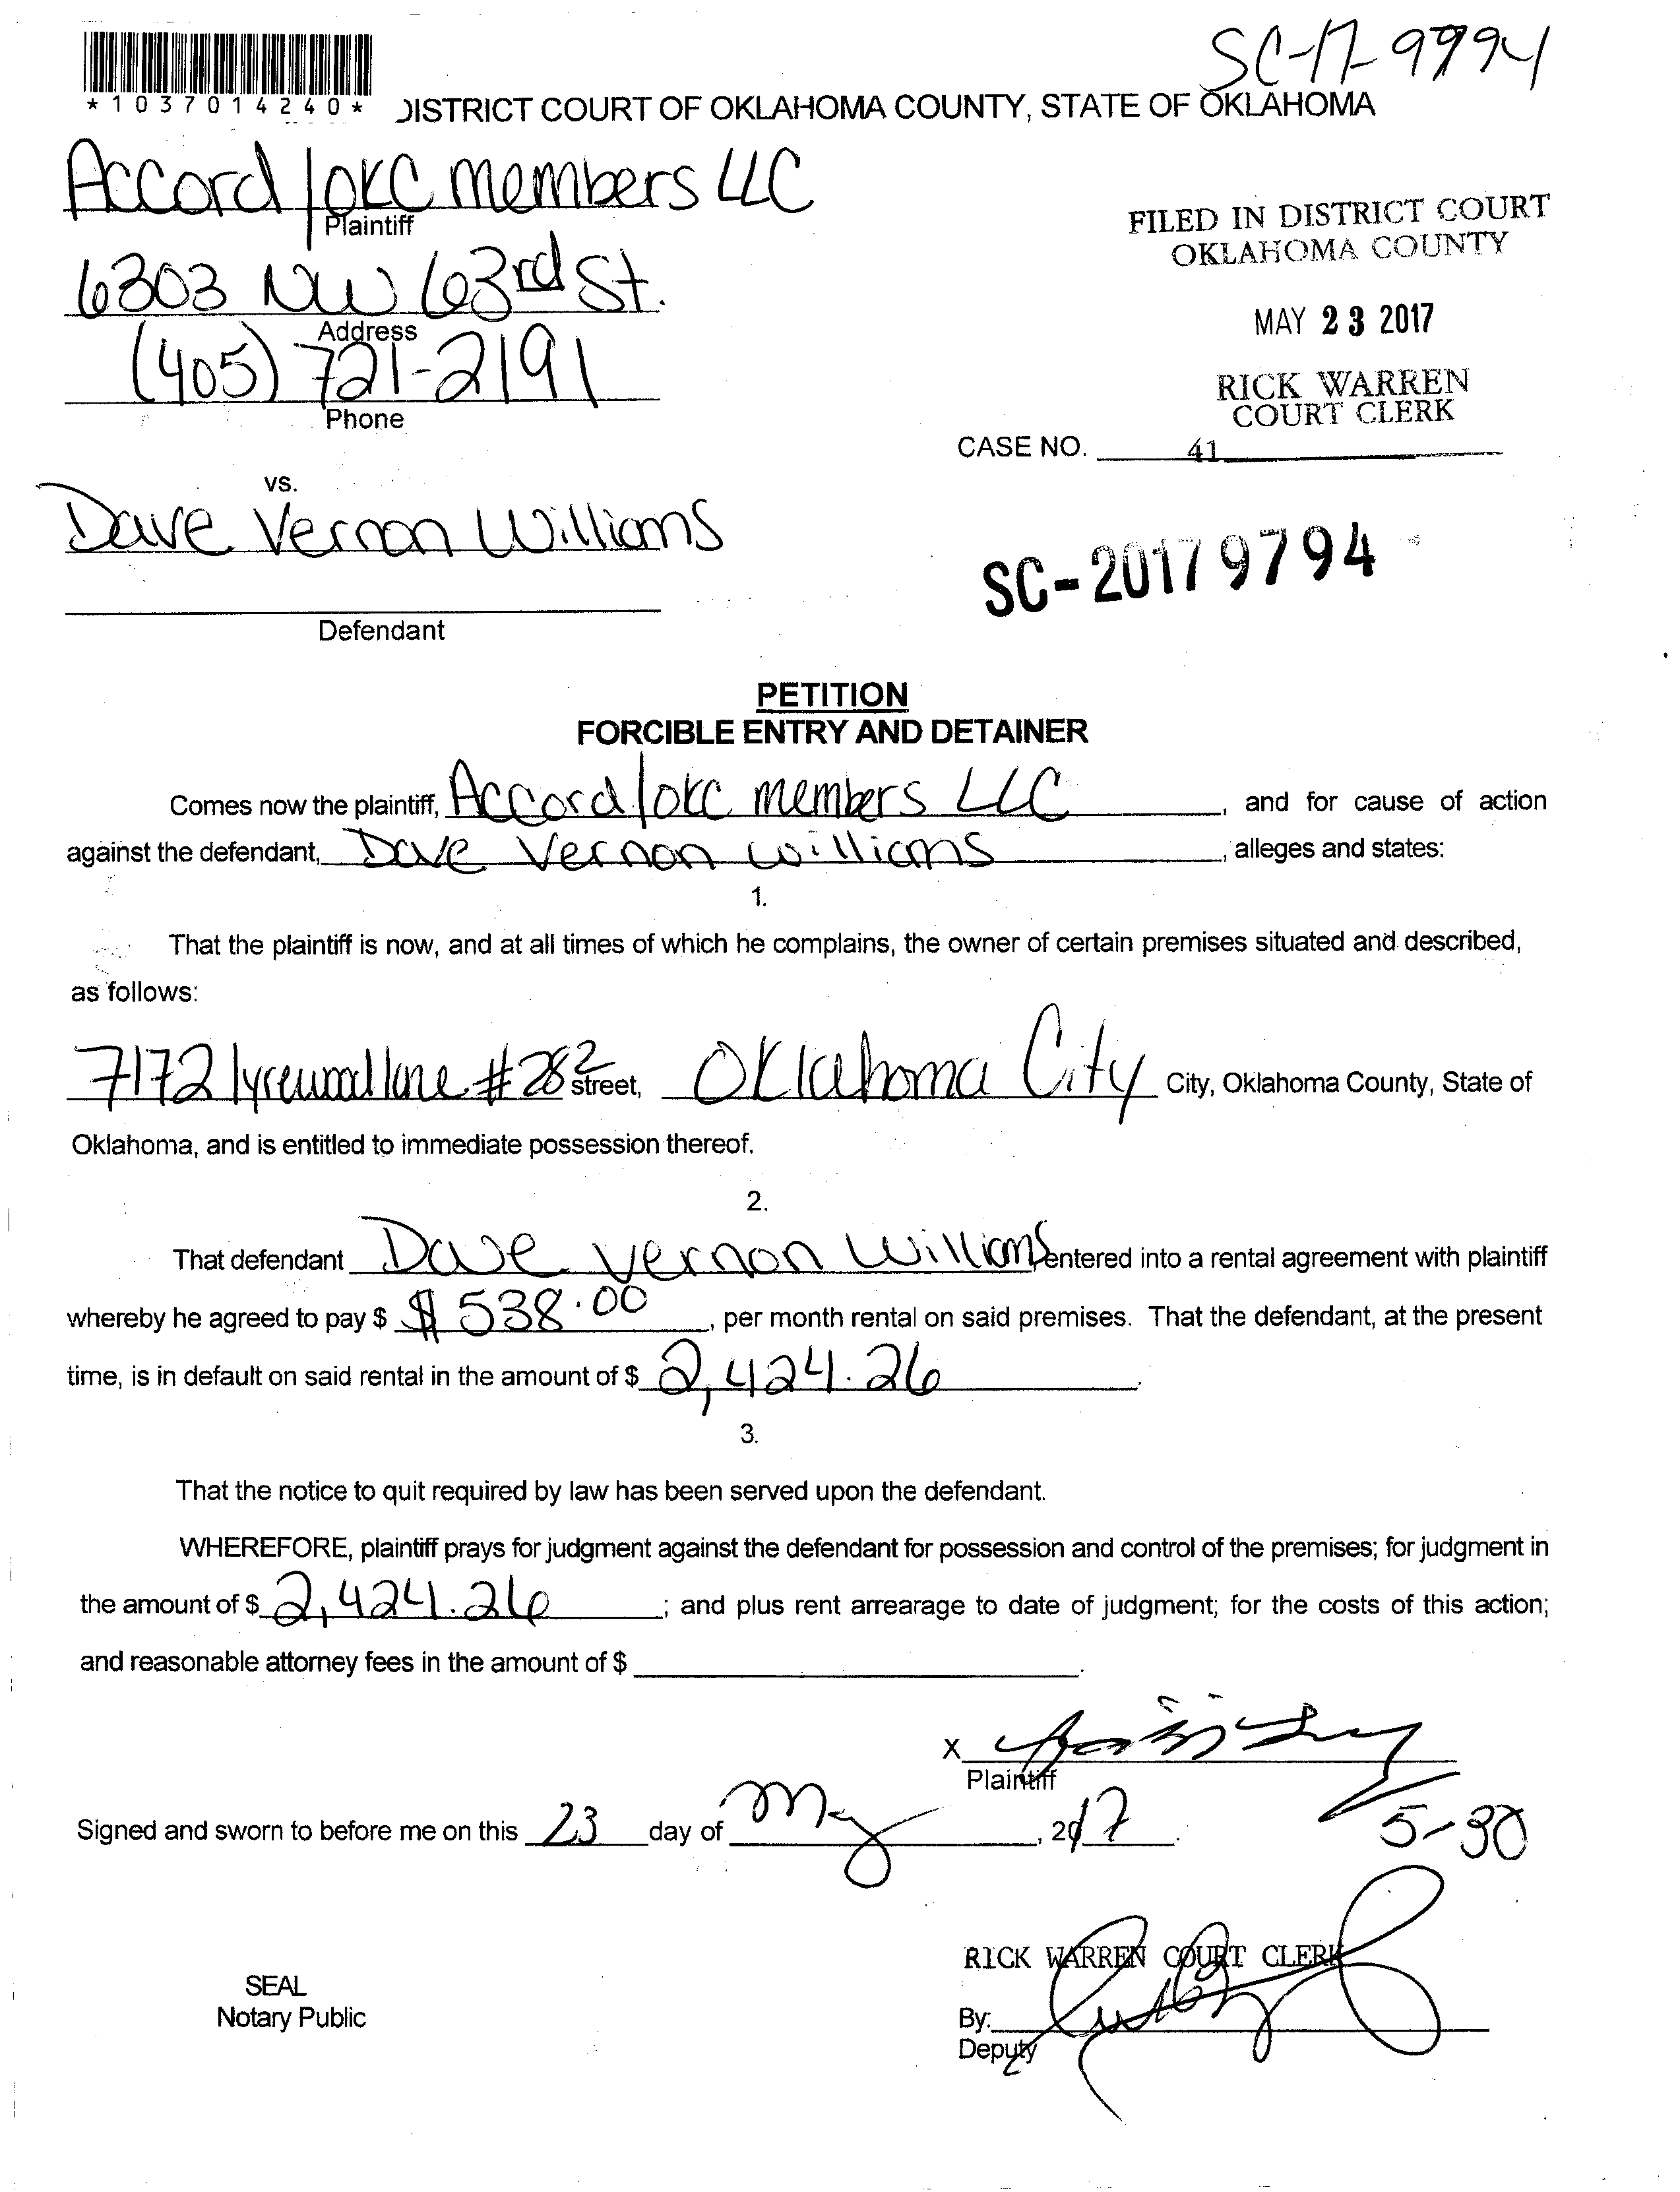 SC-17-9794
*1037014240*
DISTRICT COURT OF OKLAHOMA COUNTY, STATE OF OKLAHOMA
Accord/OKC members LLC
Plaintiff
6303 NW 63rd St.
Address
(405) 721-2191
Phone
FILED IN DISTRICT COURT
OKLAHOMA COUNTY
MAY 23 2017
RICK WARREN
COURT CLERK
CASE NO. 41
vs.
Dave Vernon Williams
SC-2017 9794
Defendant
PETITION
FORCIBLE ENTRY AND DETAINER
Comes now the plaintiff, Accord/OKC members LLC, and for cause of action
against the defendant, Dave Vernon Williams, alleges and states:
1.
That the plaintiff is now, and at all times of which he complains, the owner of certain premises situated and described,
as follows:
7172 lyrewood lane #282 street, Oklahoma City City, Oklahoma County, State of
Oklahoma, and is entitled to immediate possession thereof.
2.
That defendant Dave Vernon Williams entered into a rental agreement with plaintiff
whereby he agreed to pay $ $ 538.00, per month rental on said premises. That the defendant, at the present
time, is in default on said rental in the amount of $ 2,424.26.
3.
That the notice to quit required by law has been served upon the defendant.
WHEREFORE, plaintiff prays for judgment against the defendant for possession and control of the premises; for judgment in
the amount of $ 2,424.26; and plus rent arrearage to date of judgment; for the costs of this action;
and reasonable attorney fees in the amount of $ .
X
Plaintiff
Signed and sworn to before me on this 23 day of May, 2017.
5-30
RICK WARREN COURT CLERK
SEAL
Notary Public
By:
Deputy